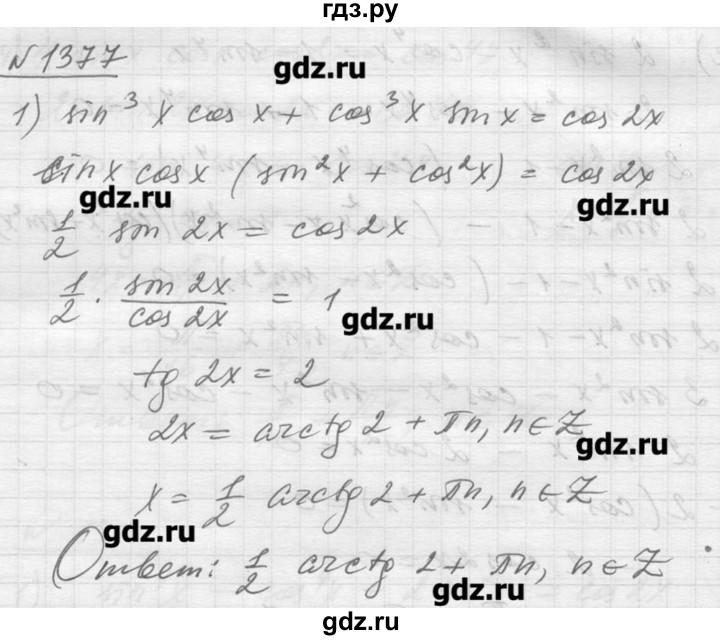 гдз.ру
№ 1377
gdz.ru
1) sin³ x cos x + cos³ x sin x = cos 2x
sin x cos x (sin² x + cos² x) = cos 2x
gdz.ru
gdz.ru
1/2 sin 2x = cos 2x
1/2 · sin 2x / cos 2x = 1
gdz.ru
tg 2x = 2
2x = arctg 2 + πn, n ∈ Z
gdz.ru
x = 1/2 arctg 2 + πn, n ∈ Z
gdz.ru
Ответ: 1/2 arctg 2 + πn, n ∈ Z
gdz.ru
gdz.ru